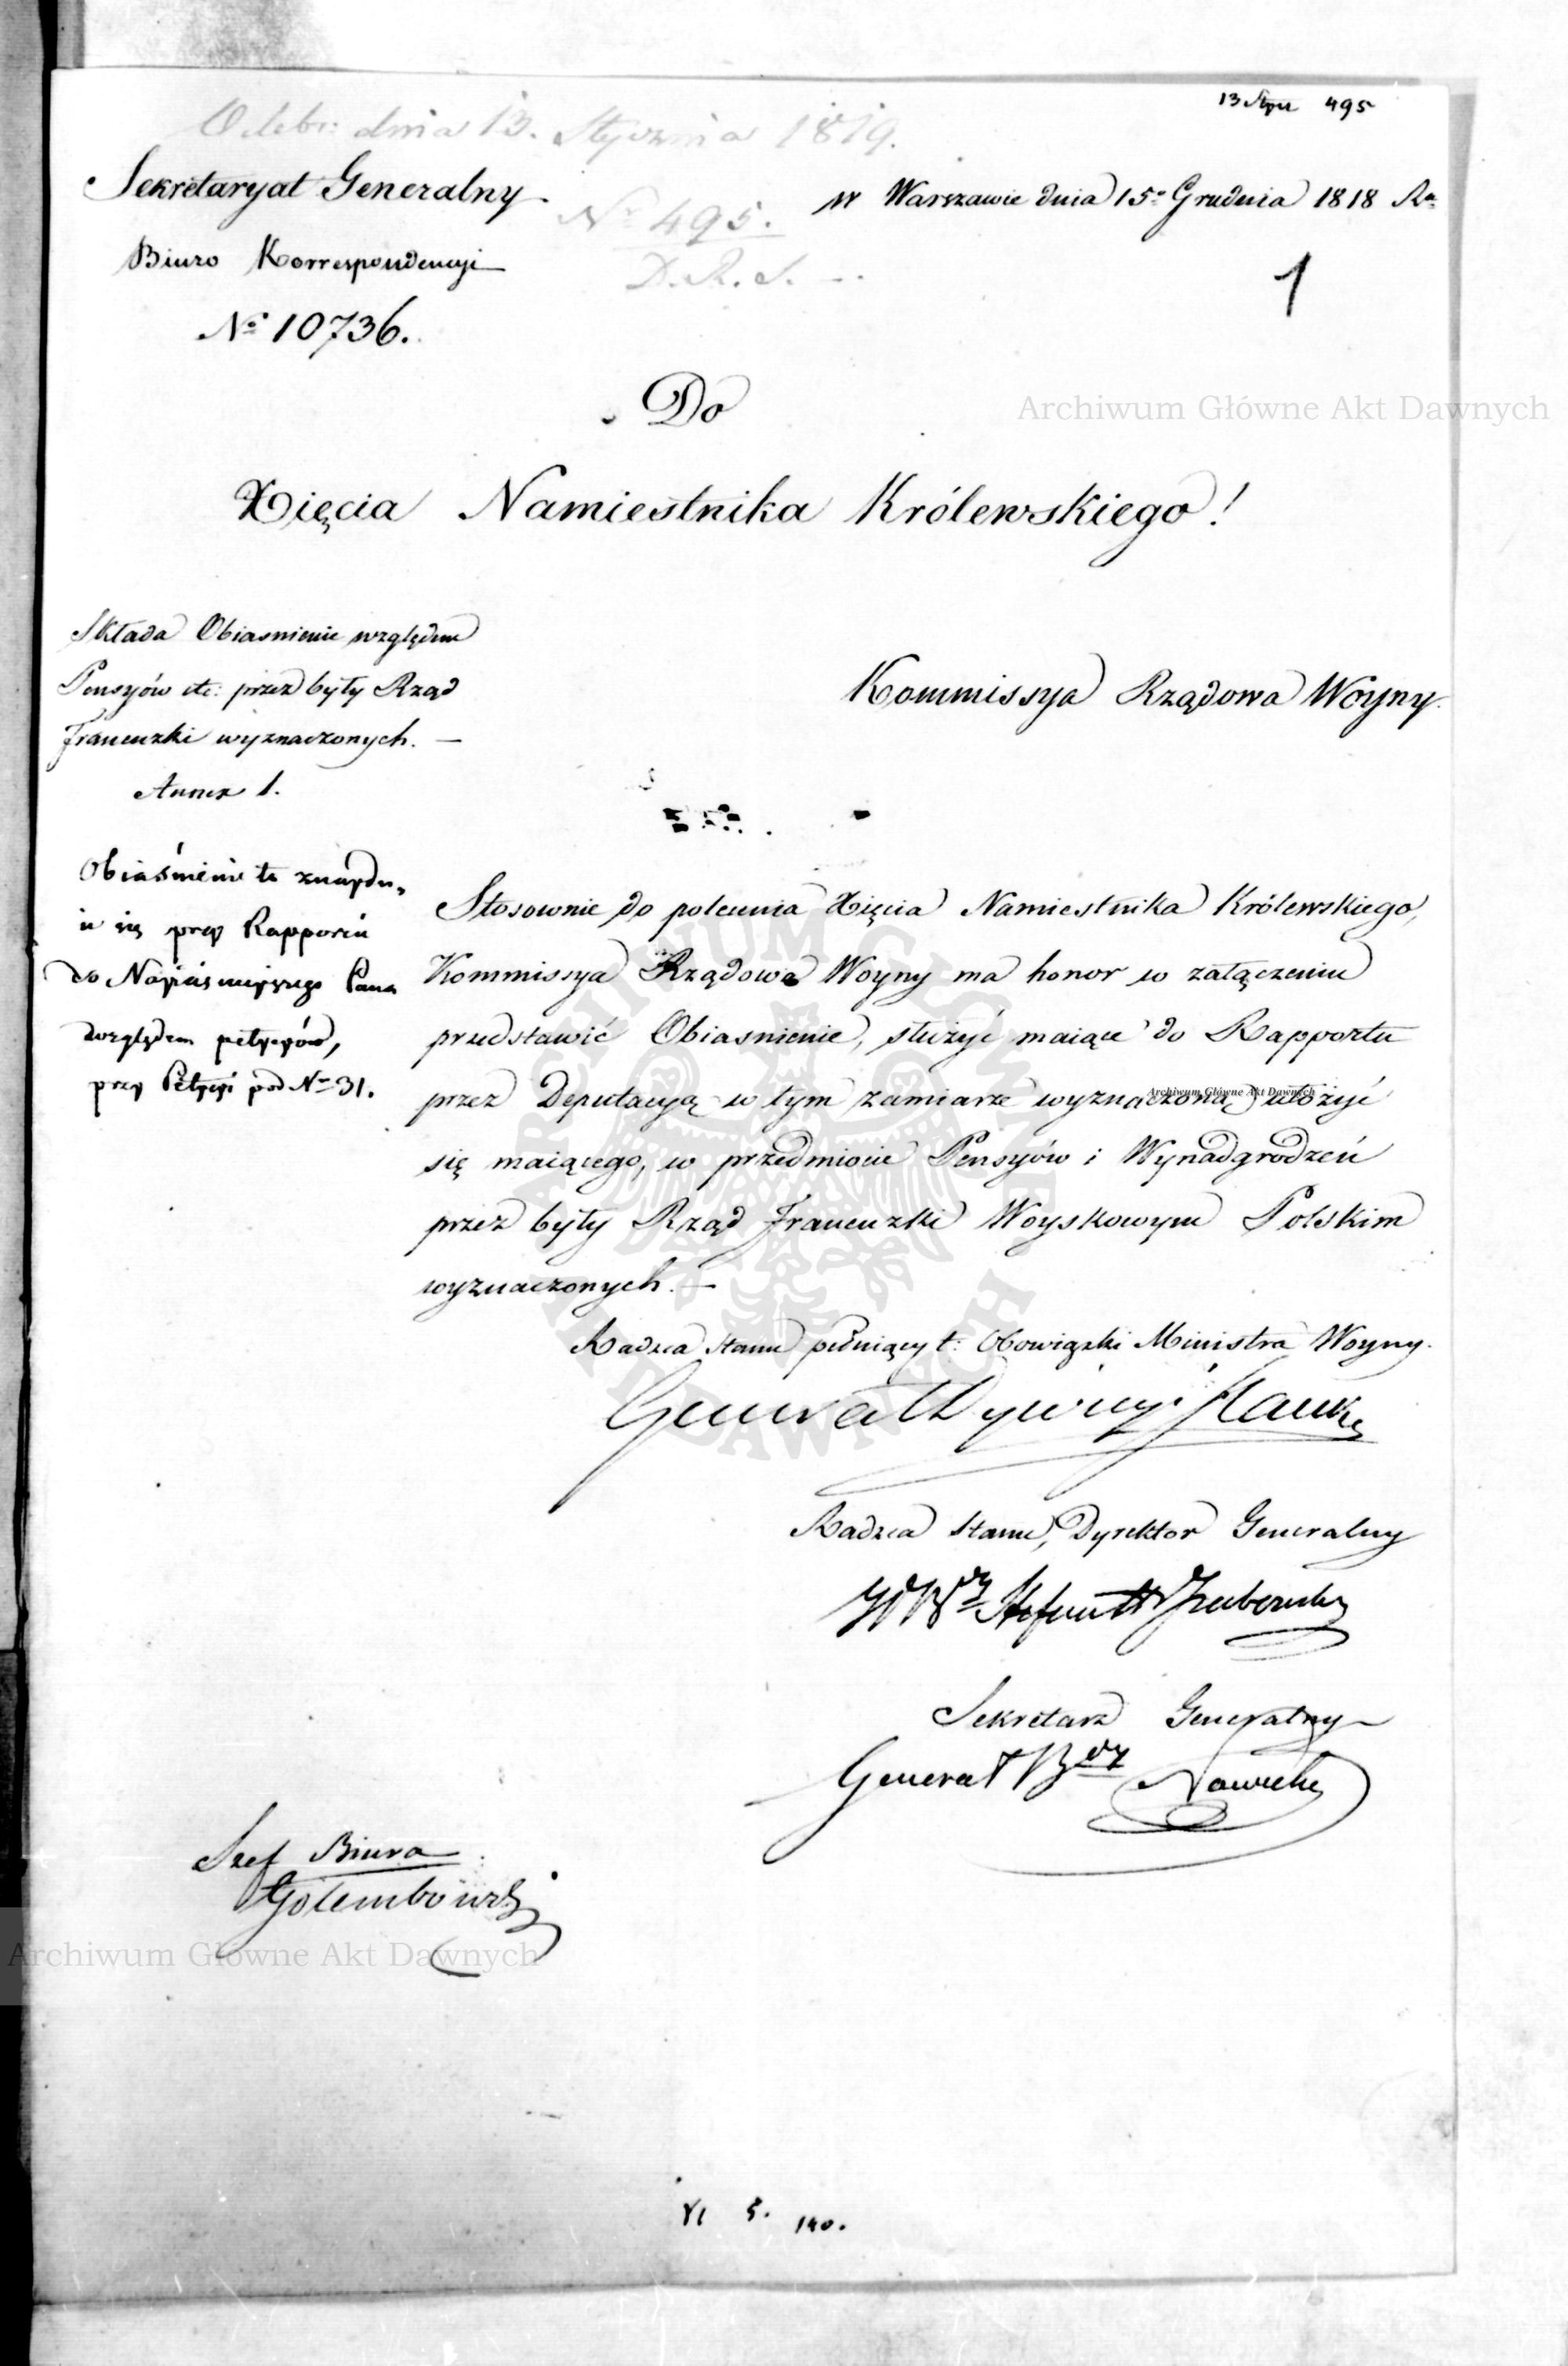 13 Stycz 495
Odebr: dnia 13. Stycznia 1819.
Sekretaryat Generalny
w Warszawie dnia 15º Grudnia 1818 Rº
Nº 495.
Biuro Korrespondencyi
D. R. S.
1
Nº 10736.
Do
Archiwum Główne Akt Dawnych
Xięcia Namiestnika Królewskiego!
Składa Obiasnienie względem
Pensyów etc: przez były Rząd
Francuzki wyznaczonych. —
Annex 1.
Kommissya Rządowa Woyny
Obiaśnienie to znaydu,
ie się przy Rapporcie
do Nayiaśnieyszego Pana
względem petycyów,
przy Petycyi pod Nº 31.
Stosownie do polecenia Xięcia Namiestnika Królewskiego,
Kommissya Rządowa Woyny ma honor w załączeniu
przedstawić Obiasnienie, służyć maiące do Rapportu
przez Deputacyą w tym zamiarze wyznaczoną ułożyć
Archiwum Główne Akt Dawnych
się maiącego, w przedmiocie Pensyów i Wynadgrodzeń
przez były Rząd Francuzki Woyskowym Polskim
wyznaczonych. —
ARCHIWUM GŁÓWNE AKT DAWNYCH
Radzca Stanu pełniący t: Obowiązki Ministra Woyny.
Generał Dywizyi Hauke
Radzca Stanu, Dyrektor Generalny
Stefan Grabowski
Sekretarz Generalny
Generał Bry Nowicki
Szef Biura
Gołembowski
Archiwum Główne Akt Dawnych
VI 5. 140.